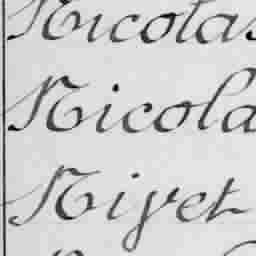 Nicolas
Nicola
Nivet